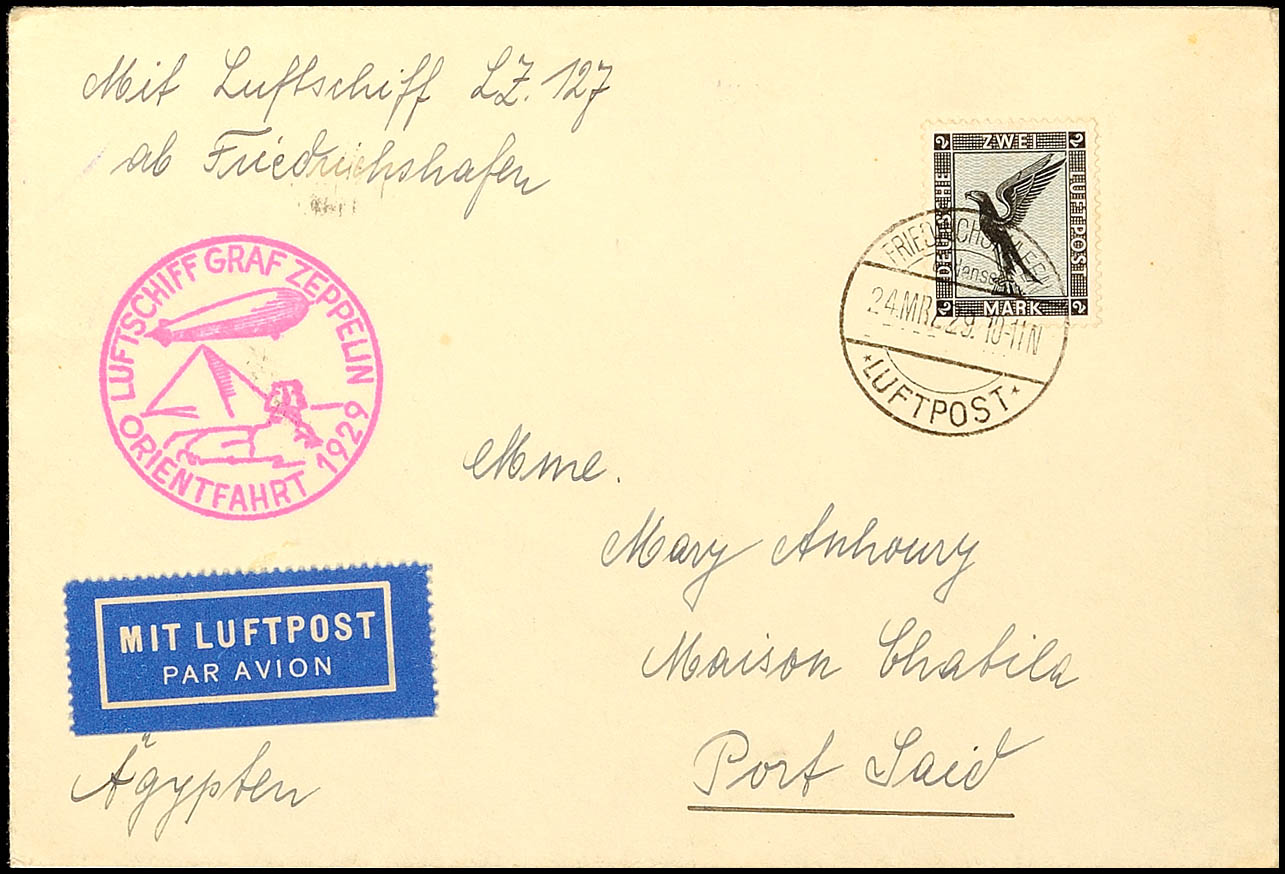 Mit Luftschiff LZ. 127
ab Friedrichshafen
LUFTSCHIFF GRAF ZEPPELIN
ORIENTFAHRT 1929
2 ZWEI 2
DEUTSCHE
LUFTPOST
2 MARK 2
24.MRZ.29. 10-11 N
*LUFTPOST*
Mme.
Mary Anhoury
Maison Chabila
Port Said
MIT LUFTPOST
PAR AVION
Ägypten